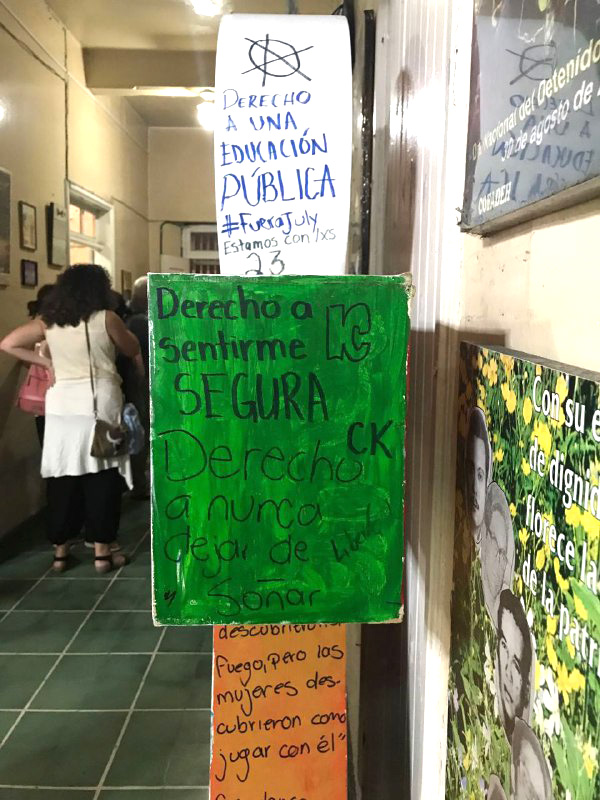 DERECHO
A UNA
EDUCACIÓN
PÚBLICA
#FueraJuly
Estamos con lxs
23
Derecho a
sentirme
SEGURA
CK
Derecho
a nunca
dejar de
y Soñar
fuego, pero las
mujeres des-
cubrieron como
jugar con él"
Nacional del Detenido
30 de agosto de
COFADEH
Con su
de dignid
florece la
de la patri